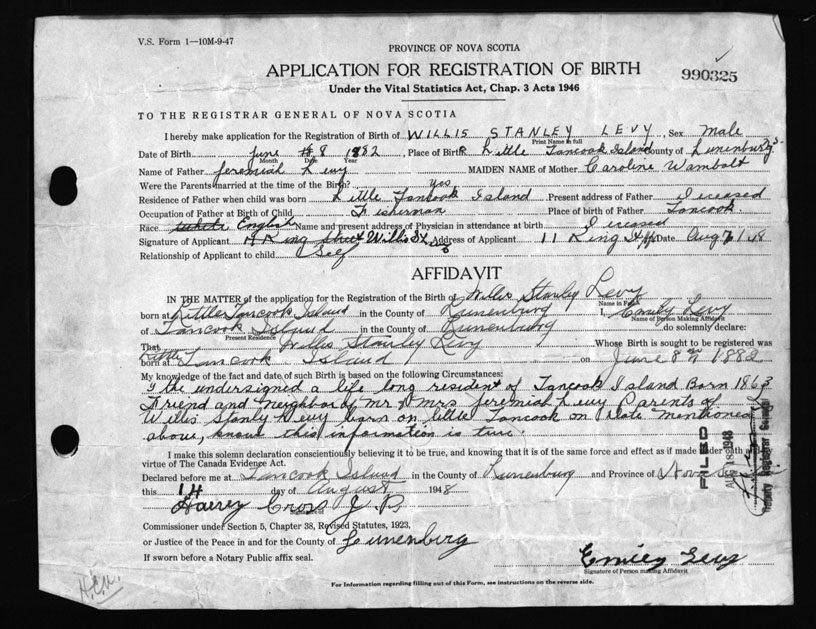 V.S. Form 1—10M-9-47
PROVINCE OF NOVA SCOTIA
APPLICATION FOR REGISTRATION OF BIRTH
990325
Under the Vital Statistics Act, Chap. 3 Acts 1946
TO THE REGISTRAR GENERAL OF NOVA SCOTIA
I hereby make application for the Registration of Birth of WILLIS STANLEY LEVY, Sex Male
Print Name in full
Date of Birth June 8 1882, Place of Birth Little Tancook Island County of Lunenburg
Month Date Year
Name of Father Jeremiah Levy MAIDEN NAME of Mother Caroline Wambolt
Were the Parents married at the time of the Birth? Yes
Residence of Father when child was born Little Tancook Island Present address of Father Deceased
Occupation of Father at Birth of Child Fisherman Place of birth of Father Tancook
Race white English Name and present address of Physician in attendance at birth Deceased
Signature of Applicant Address of Applicant 11 King St Date Aug
Relationship of Applicant to child Self
AFFIDAVIT
IN THE MATTER of the application for the Registration of the Birth of Willis Stanley Levy
Name in Full
born at Little Tancook Island in the County of Lunenburg I, Emily Levy
Name of Person Making Affidavit
of Tancook Island in the County of Lunenburg do solemnly declare:
Present Residence
That Willis Stanley Levy Whose Birth is sought to be registered was
born at Little Tancook Island on June 8th 1882
My knowledge of the fact and date of such Birth is based on the following Circumstances:
I the undersigned a life long resident of Tancook Island Born 1863
Friend and Neighbor of Mr & Mrs Jeremiah Levy Parents of
Willis Stanly Levy born on little Tancook on date mentioned
above, know this information is true.
I make this solemn declaration conscientiously believing it to be true, and knowing that it is of the same force and effect as if made under oath and by
virtue of The Canada Evidence Act.
Declared before me at Tancook Island in the County of Lunenburg and Province of Nova Scotia
this 14 day of August 1948
Harry Cross J.P.
Signature of
Commissioner under Section 5, Chapter 38, Revised Statutes, 1923,
or Justice of the Peace in and for the County of Lunenburg
If sworn before a Notary Public affix seal.
Emiley Levy
Signature of Person making Affidavit
FILED
AUG 18 1948
Deputy Registrar General
For Information regarding filling out of this Form, see instructions on the reverse side.